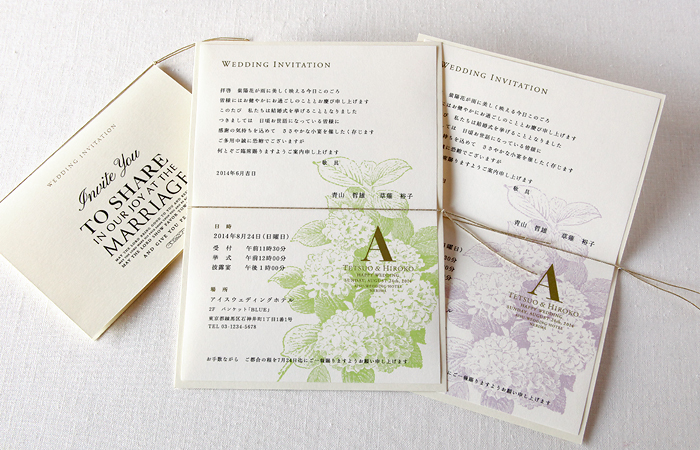 WEDDING INVITATION
Invite You
TO SHARE
IN OUR JOY AT THE
MARRIAGE
MAY THE LORD SHOW FAVOR
AND GIVE YOU PE
WEDDING INVITATION
拝啓 紫陽花が雨に美しく映える今日このごろ
皆様にはお健やかにお過ごしのこととお慶び申し上げます
このたび 私たちは結婚式を挙げることとなりました
つきましては 日頃お世話になっている皆様に
感謝の気持ちを込めて ささやかな小宴を催したく存じます
ご多用中誠に恐縮でございますが
何とぞご臨席賜りますようご案内申し上げます
敬具
2014年6月吉日
青山 哲雄 草薙 裕子
日時
2014年8月24日(日曜日)
受付 午前11時30分
挙式 午前12時00分
披露宴 午後1時00分
場所
アイスウェディングホテル
2F バンケット「BLUE」
東京都練馬区石神井町1丁目1番1号
TEL 03-1234-5678
A
TETSUO & HIROKO
HAPPY WEDDING
SUNDAY, AUGUST 24th, 2014
お手数ながら ご都合の程を7月24日迄にご一報賜りますようお願い申し上げます
WEDDING INVITATION
紫陽花が雨に美しく映える今日このごろ
にはお健やかにお過ごしのこととお慶び申し上げます
たび 私たちは結婚式を挙げることとなりました
ましては 日頃お世話になっている皆様に
の気持ちを込めて ささやかな小宴を催したく存じます
中誠に恐縮でございますが
ぞご臨席賜りますようご案内申し上げます
敬具
青山 哲雄 草薙 裕子
日曜日)
0分
0分
A
TETSUO & HIROKO
HAPPY WEDDING
SUNDAY, AUGUST 24th, 2014
迄にご一報賜りますようお願い申し上げます